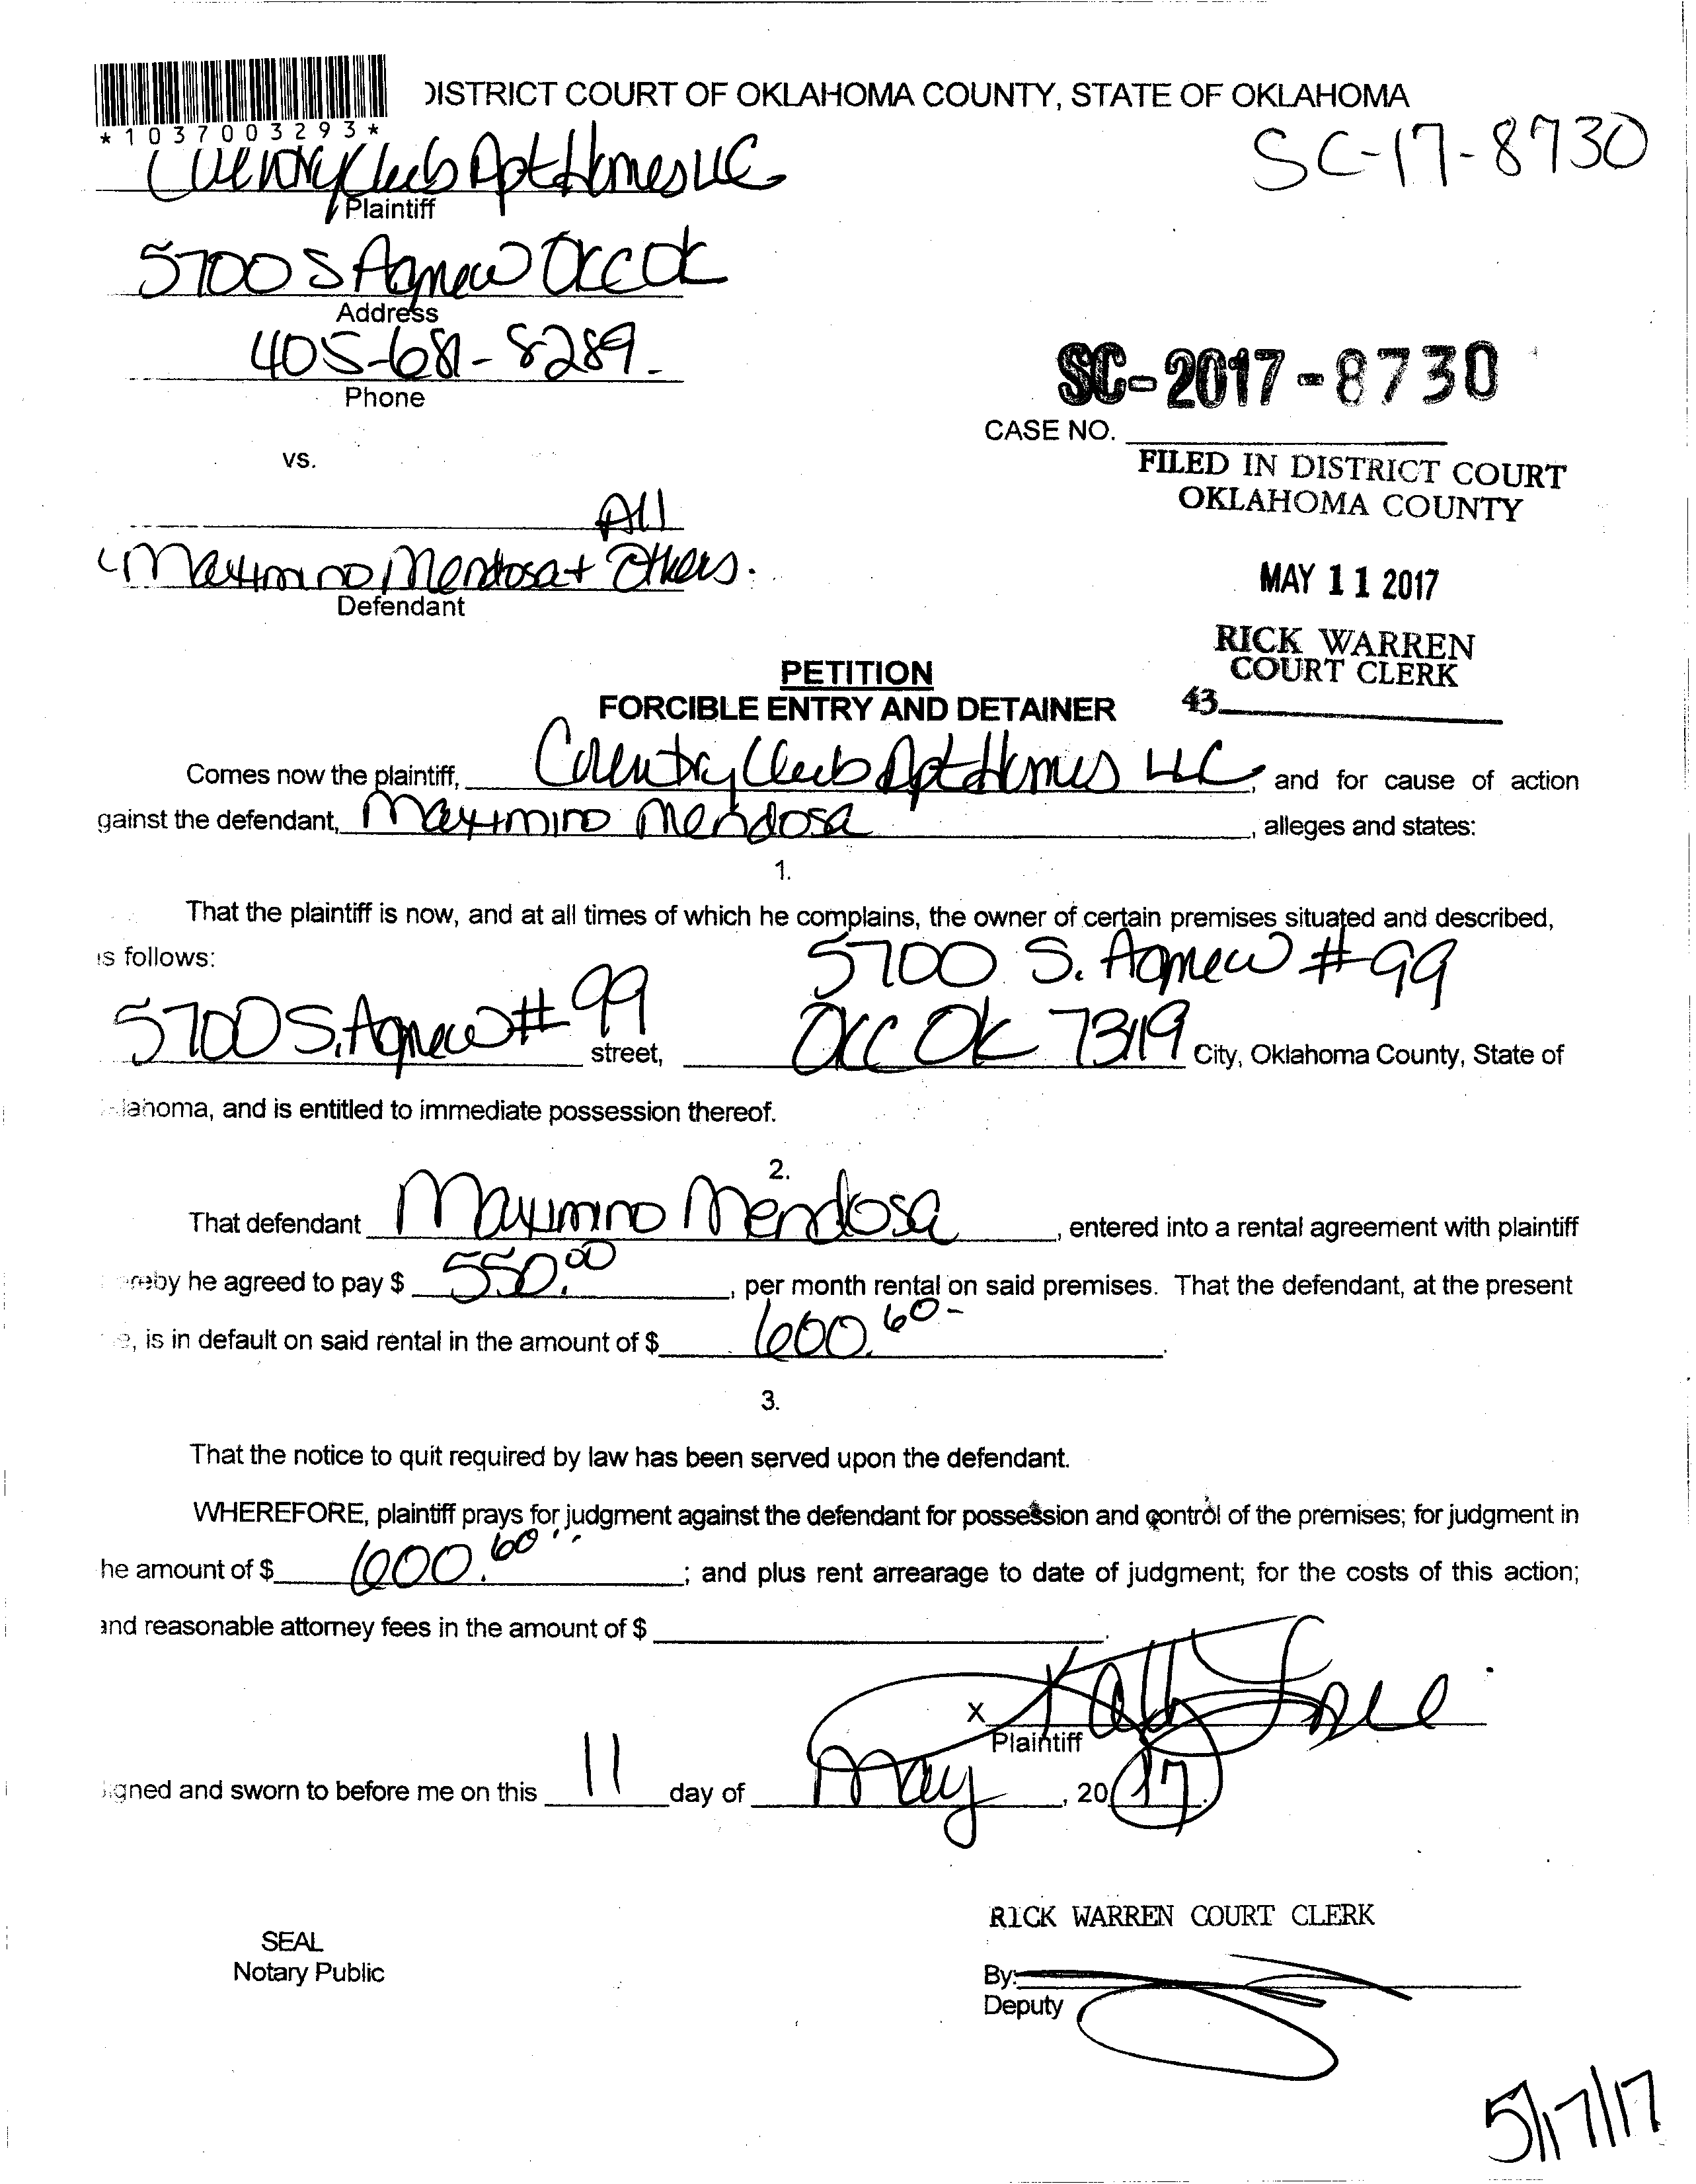 DISTRICT COURT OF OKLAHOMA COUNTY, STATE OF OKLAHOMA
*1037003293*
SC-17-8730
Country Club Apt Homes LLC
Plaintiff
5700 S Agnew OKC OK
Address
405-681-8289
Phone
SC-2017-8730
CASE NO.
vs.
FILED IN DISTRICT COURT
OKLAHOMA COUNTY
All
Maximino Mendosa + Others.
Defendant
MAY 11 2017
RICK WARREN
COURT CLERK
43
PETITION
FORCIBLE ENTRY AND DETAINER
Comes now the plaintiff, Country Club Apt Homes LLC, and for cause of action
gainst the defendant, Maximino Mendosa, alleges and states:
1.
That the plaintiff is now, and at all times of which he complains, the owner of certain premises situated and described,
s follows:
5700 S. Agnew #99
5700 S. Agnew #99 street, OKC OK 73119 City, Oklahoma County, State of
lahoma, and is entitled to immediate possession thereof.
2.
That defendant Maximino Mendosa, entered into a rental agreement with plaintiff
reby he agreed to pay $ 550.00, per month rental on said premises. That the defendant, at the present
e, is in default on said rental in the amount of $ 600.60-.
3.
That the notice to quit required by law has been served upon the defendant.
WHEREFORE, plaintiff prays for judgment against the defendant for possession and control of the premises; for judgment in
he amount of $ 600.60; and plus rent arrearage to date of judgment; for the costs of this action;
and reasonable attorney fees in the amount of $ .
X
Plaintiff
igned and sworn to before me on this 11 day of May, 20 17.
RICK WARREN COURT CLERK
SEAL
Notary Public
By:
Deputy
5/17/17